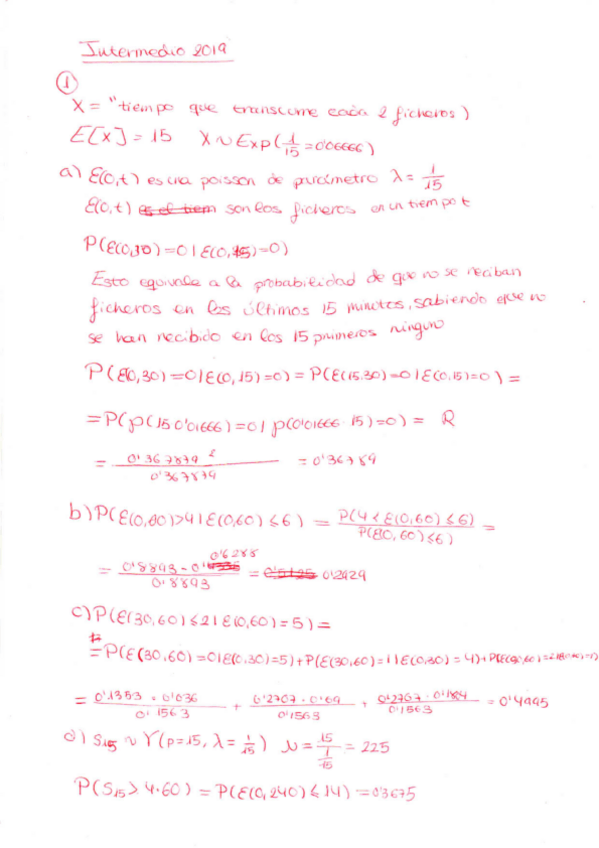 Intermedio 2019
①
X = "tiempo que transcurre cada 2 ficheros)
E[X] = 15 X ~ Exp(1/15 = 0'06666)
a) E(0,t) es una poisson de parámetro λ = 1/15
E(0,t) es el tiem son los ficheros en un tiempo t
P(E(0,30) = 0 | E(0,15) = 0)
Esto equivale a la probabilidad de que no se reciban
ficheros en los últimos 15 minutos, sabiendo que no
se han recibido en los 15 primeros ninguno
P(E(0,30) = 0 | E(0,15) = 0) = P(E(15,30) = 0 | E(0,15) = 0) =
= P(p(15 0'01666) = 0 | p(0'01666 · 15) = 0) = R
= 0'367879² / 0'367879 = 0'36789
b) P(E(0,60) > 4 | E(0,60) ≤ 6) = P(4 < E(0,60) ≤ 6) / P(E(0,60) ≤ 6) =
= 0'8893 - 0'6288 / 0'8893 = 0'2929
c) P(E(30,60) ≤ 2 | E(0,60) = 5) =
= P(E(30,60) = 0 | E(0,30) = 5) + P(E(30,60) = 1 | E(0,30) = 4) +
= 0'1353 · 0'036 / 0'1563 + 0'2707 · 0'09 / 0'1563 + 0'2767 · 0'184 / 0'1563 = 0'4995
d) S₁₅ ~ γ(p=15, λ = 1/15) μ = 15 / 1/15 = 225
P(S₁₅ > 4·60) = P(E(0,240) ≤ 14) = 0'3675